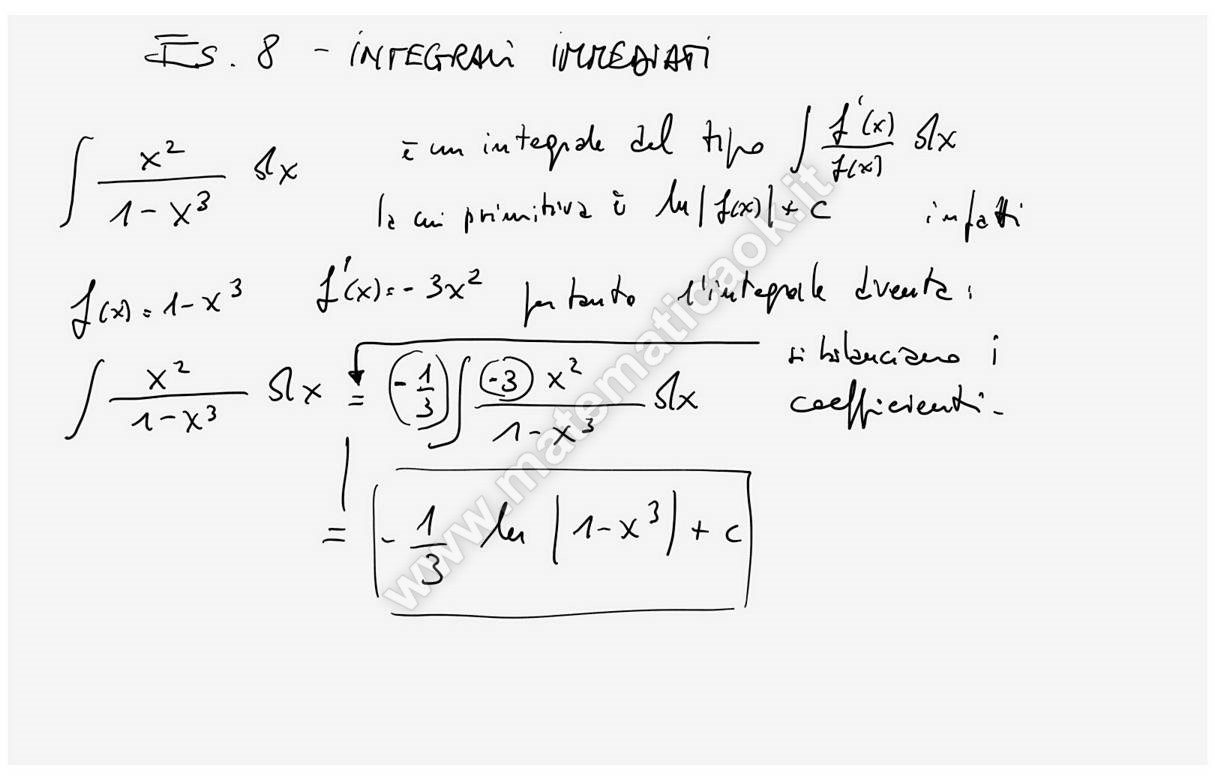 Es. 8 - INTEGRALI IMMEDIATI
∫ x²/(1-x³) dx è un integrale del tipo ∫ f'(x)/f(x) dx
la cui primitiva è ln|f(x)| + c infatti
f(x) = 1-x³ f'(x) = -3x² pertanto l'integrale diventa:
∫ x²/(1-x³) dx = (-1/3) ∫ (-3) x²/(1-x³) dx si bilanciano i
coefficienti.
= -1/3 ln |1-x³| + c
www.matematicaok.it